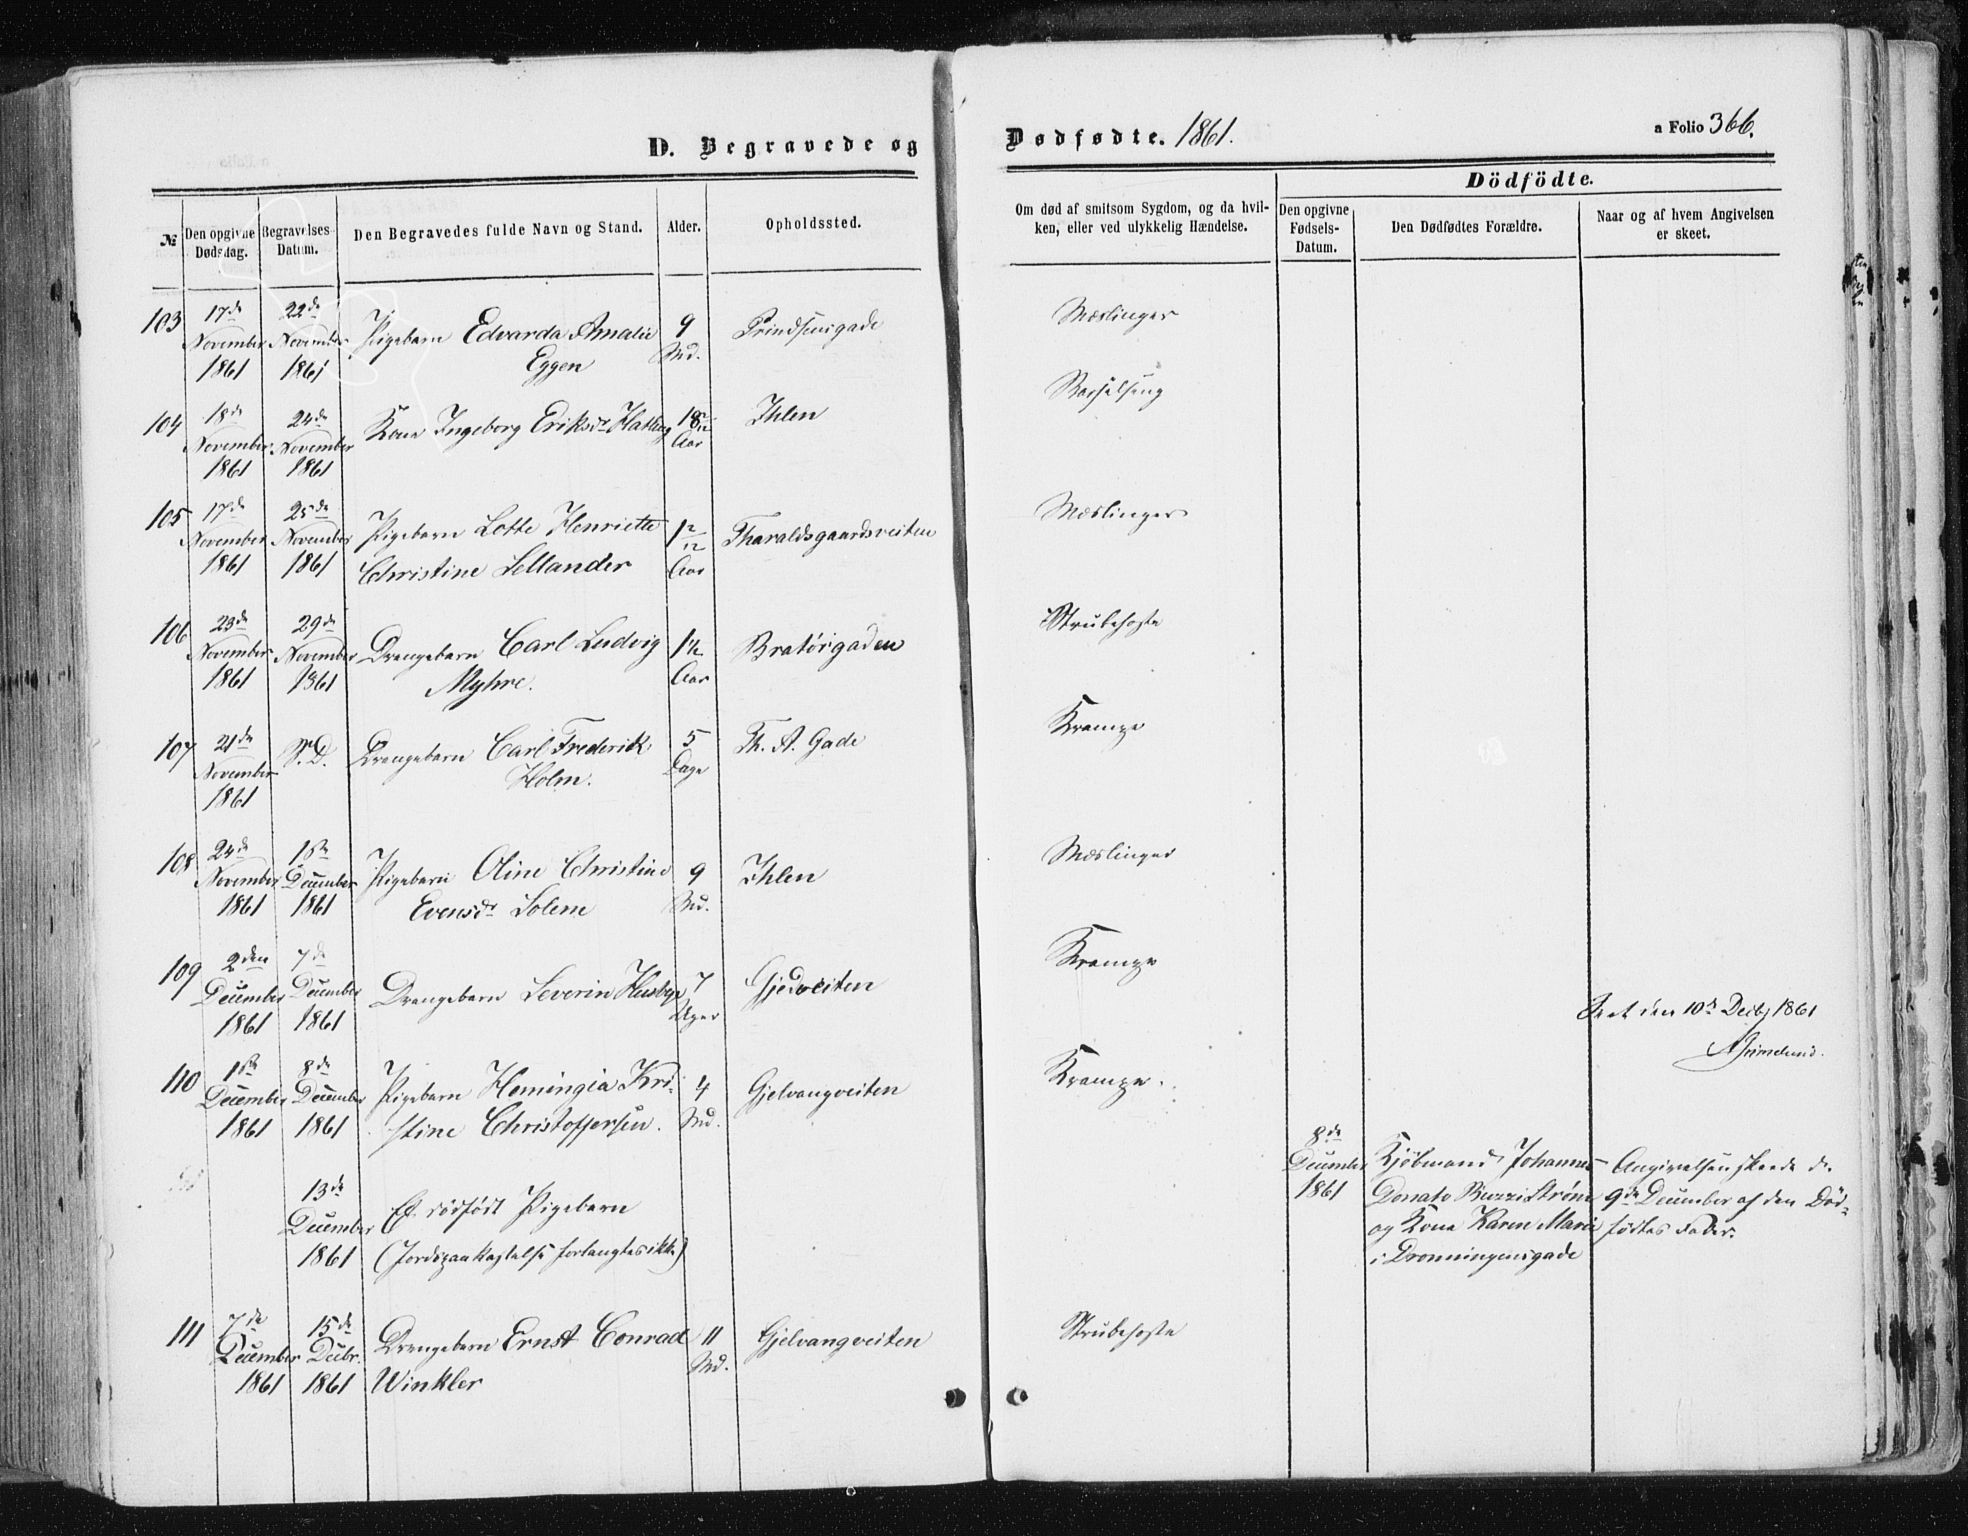 D. Begravede og Dødfødte. 1861.
a Folio 366.
Dödfödte.
№
Den opgivne Dødsdag.
Begravelses-Datum.
Den Begravedes fulde Navn og Stand.
Alder.
Opholdssted.
Om død af smitsom Sygdom, og da hvil-
ken, eller ved ulykkelig Hændelse.
Den opgivne Fødsels-Datum.
Den Dødfødtes Forældre.
Naar og af hvem Angivelsen
er skeet.
103 17de November 1861 22de November 1861 Pigebarn Edvarda Amalie Eggen 9 Md. Prindsensgade Mæslinger
104 18de November 1861 24de November 1861 Kone Ingeborg Eriksdr Aar Ihlen Barselseng
105 17de November 1861 25de November 1861 Pigebarn Lotte Henriette
Christine Sellander 1 2/12 Aar Tharaldsgaardsveiten Mæslinger
106 23de November 1861 29de November 1861 Drengebarn Carl Ludvig
Myhre. 1½ Aar Bratørgaden Strubehoste
107 21de November 1861 S. D. Drengebarn Carl Frederik
Holm. 5 Dage Th. A. Gade Krampe
108 24de November 1861 1ste December 1861 Pigebarn Oline Christine
Evensdr Solem 9 Md. Ihlen Mæslinger
109 2den December 1861 7de December 1861 Drengebarn Severin Husbye 7 Uger Gjedveiten Krampe
Seet den 10de Decbr 1861
AGrimelund.
110 1ste December 1861 8de December 1861 Pigebarn Hemingia Kri-
stine Christophersen. 4 Md. Gjelvangveiten Krampe.
13de December 1861 Et dødfødt Pigebarn
(Jordspaakastelse forlangtes ikke)
8de December 1861
Kjøbmand Johannes
Donato Buzzi Strøm
og Kone Karen Marie
i Dronningensgade
Angivelsen skeede d.
9de December af den Død-
fødtes Fader.
111 7de December 1861 15de Decbr. 1861 Drengebarn Ernst Conrad
Winkler 11 Md. Gjelvangveiten Strubehoste